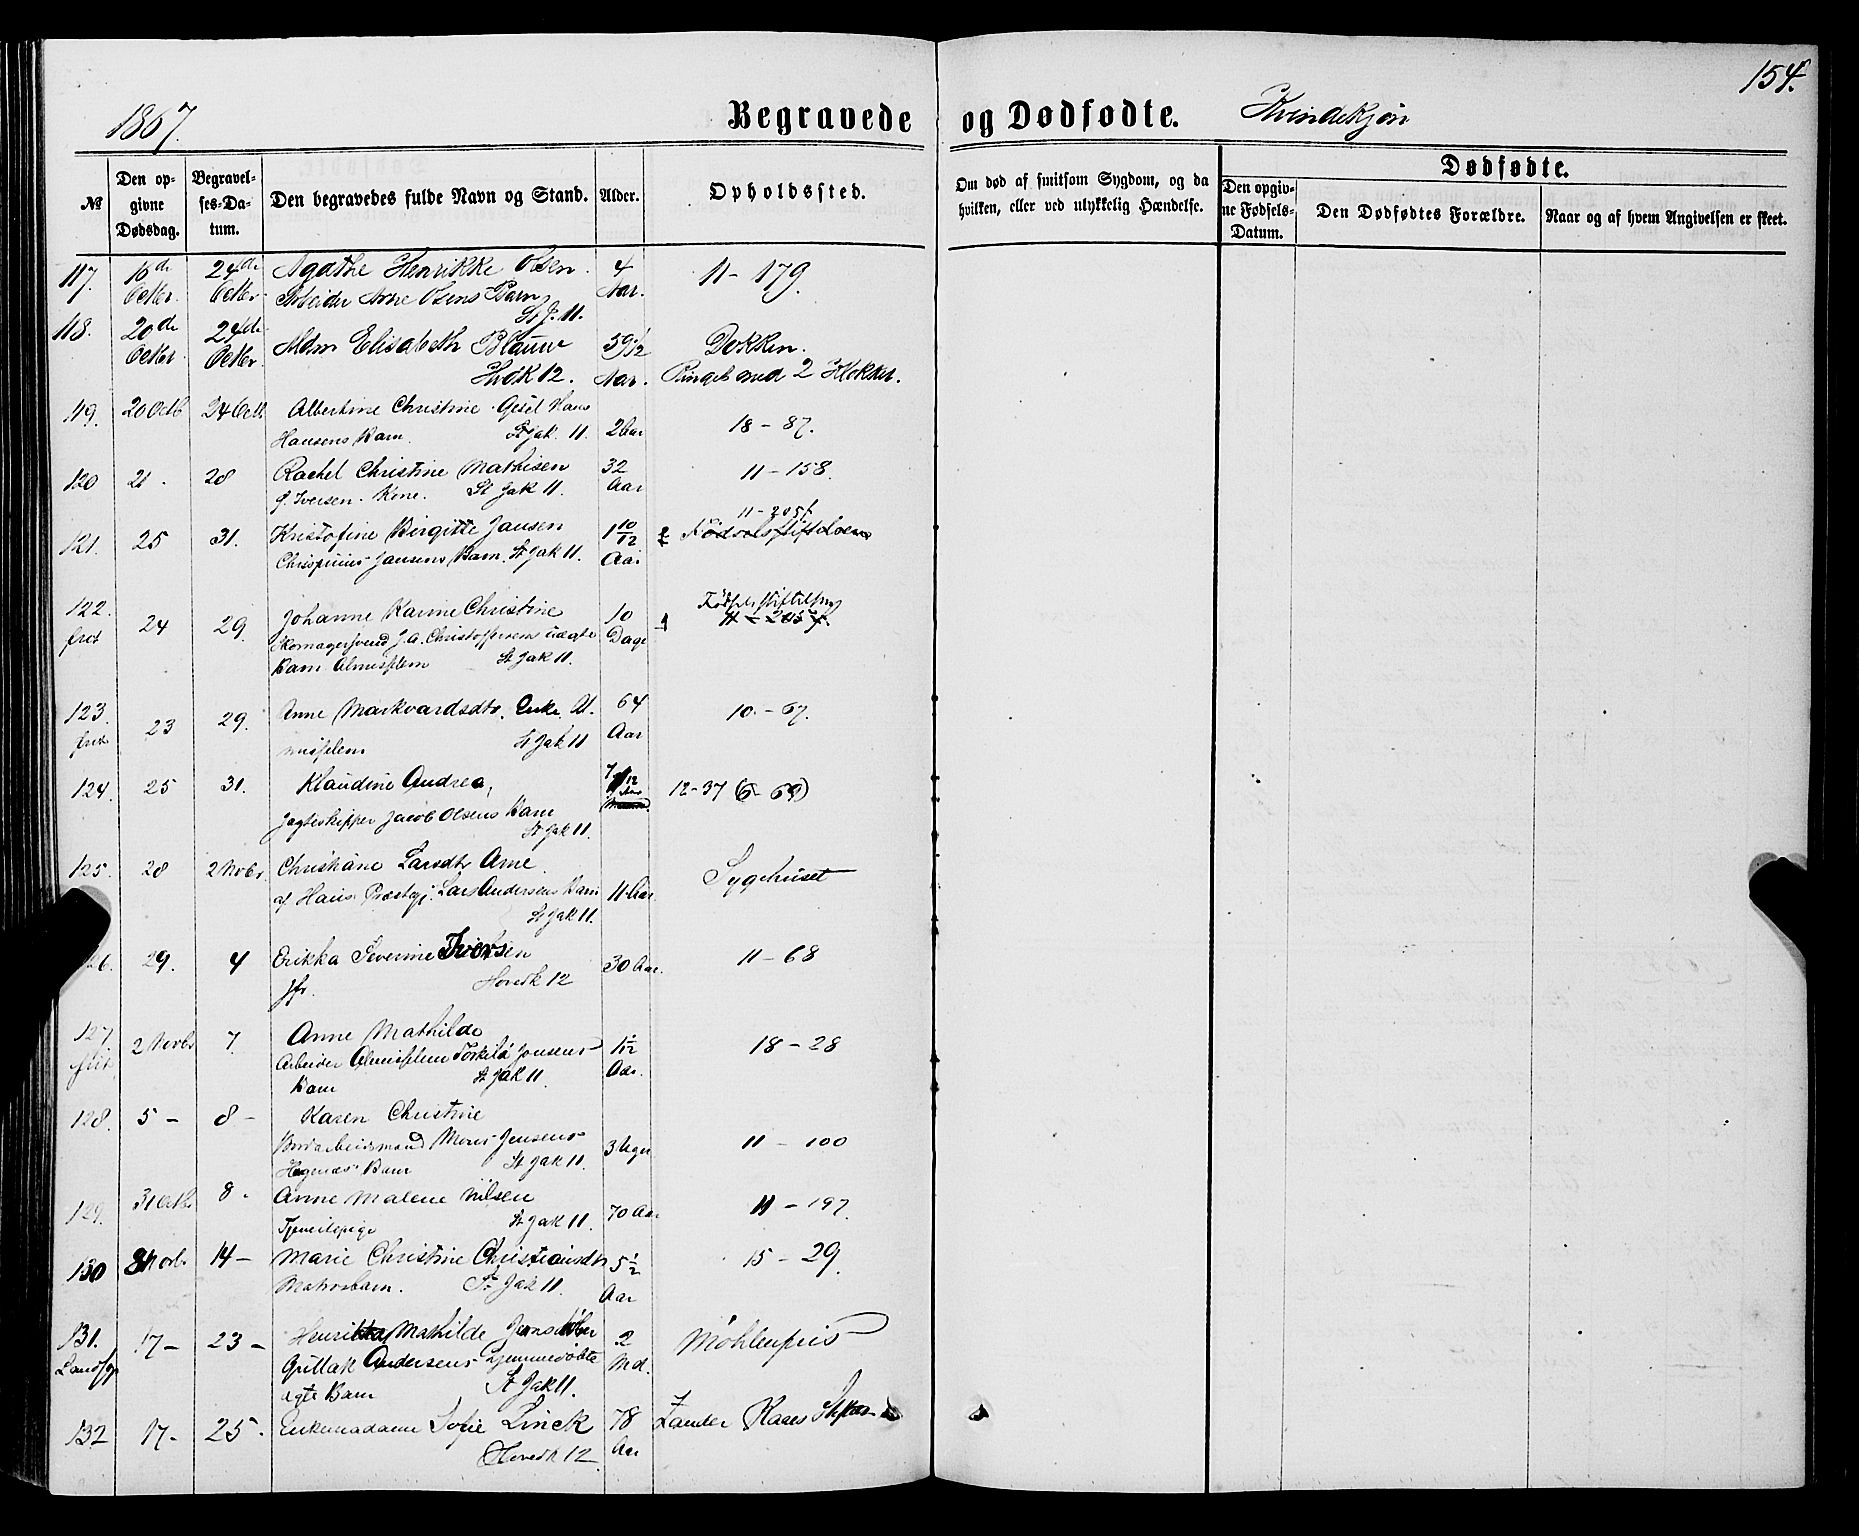 154.
1867.
Begravede og Dødfødte. Kvindekjøn
№
Den opgivne Dødsdag.
Begravelses-Datum.
Den begravedes fulde Navn og Stand.
Alder.
Opholdssted.
Om død af smitsom Sygdom, og da hvilken, eller ved ulykkelig Hændelse.
Dødfødte.
Den opgivne Fødsels-Datum.
Den Dødfødtes Forældre.
Naar og af hvem Angivelsen er skeet.
117. 16de Octbr. 24de Octbr. Agathe Henrikke Olsen 4 Aar. 11-179.
Arbeider Arne Olsens Barn
St J. 11.
118. 20de Octbr. 24de Octbr. Mdm Elisabeth Blauw 59 1/2 Aar. Dokken.
Hvdk 12. Ringet med 2 Klokker.
119. 20 Octb 24 Octb Albertine Christine Gesel Hans
Hansens Barn. St Jak. 11. 2 Aar 18-87.
120 21. 28 Rachel Christine Mathisen 32 Aar 11-158.
f. Iversen. Kone. St Jak 11.
121. 25 31. Kristofine Birgitte Jansen 1 10/12 Aar 11-205f
Chrispinus Jansens Barn. St Jak 11. 2 Fødselsstiftelsen
122. frit 24 29. Johanne Karine Christine 10 Dage 1 Fødselsstiftelsen
Skomagersvend J. A. Christoffersens uægte 11-205f.
Barn Almisslem St Jak 11.
123. frit 23 29. Anne Markvardsdtr. Enke. Al- 64 Aar 10.-67.
misslem St Jak 11
124. 25 31. Klaudine Andrea, 12-37 (6-69)
Jagteskipper Jacob Olsens Barn
St Jak 11.
125. 28 2 Novbr. Christiane Larsdtr Arne
af Haus Præstgj. Lars Andersens Barn 11 Aar. Sygehuset
St Jak 11.
126. 29. 4 Erikka Severine Iversen 30 Aar. 11-68
Jfr. Hovedk 12
127. frit 2 Novbr 7. Anne Mathilde
Arbeider Almisslem Torkild Jonsens 1 1/2 Aar. 18-28
Barn St Jak 11.
128. 5- 8- Karen Christine
Bordarbeidsmand Mons Jensens 3 Uger 11-100
Hegenæs Barn St Jak 11.
129. 31 Octbr 8. Anne Malene Nilsen 70 Aar 11-197.
Tjenestepige St Jak 11.
130 8 Novbr 14- Marie Christine Christiansdtr 5 1/2 Aar 15-29.
Matrosbarn. St Jak 11.
131. 17- 23- Mathilde 2 Md. Møhlenpris
Guttak Andersens hjemmedøbte
ægte Barn St Jak 11.
132 17- 25. Enkemadame Sofie Linck 78 Aar Zander Kaaes
Hovedk 12.